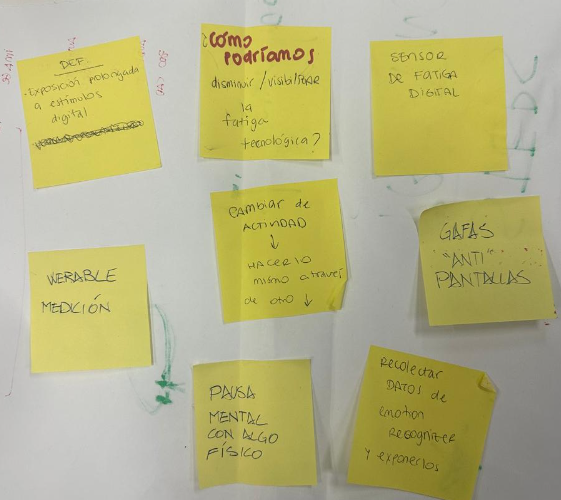 DEF.
- Exposición prolongada
a estímulos
digital
¿Cómo
podríamos
disminuir / visibilizar
la
fatiga
tecnológica?
SENSOR
DE FATIGA
DIGITAL
CAMBIAR DE
ACTIVIDAD
↓
HACER LO
mismo a través
de otro ↓
GAFAS
"ANTI"
PANTALLAS
WERABLE
MEDICIÓN
PAUSA
MENTAL
CON ALGO
FÍSICO
Recolectar
DATOS de
emotion
Recognizer
Y exponerlos